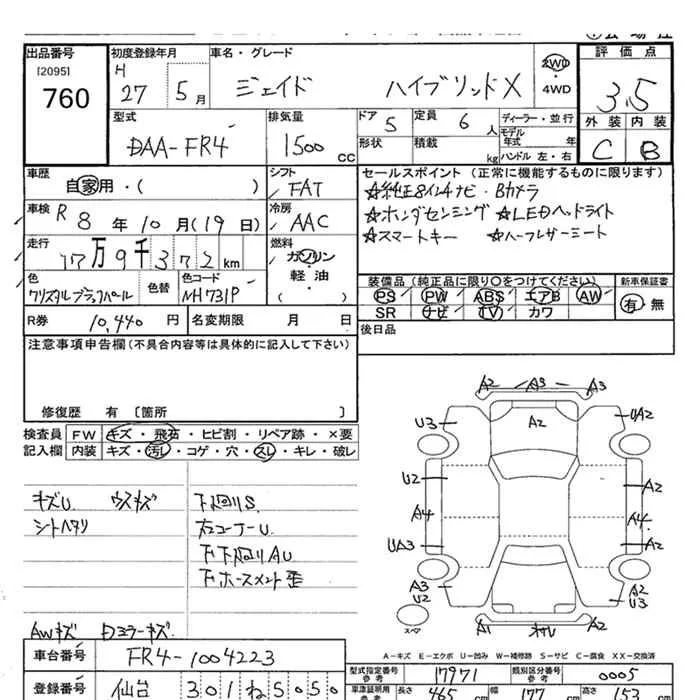 出品番号
[2095]
760
初度登録年月
H 27 5月
車名・グレード
ジェイド ハイブリッドX
2WD
・
4WD
評価点
3.5
外装 内装
C B
型式
DAA-FR4
排気量
1500 CC
ドア 5
定員 6人
形状
積載 kg
ディーラー・並行
モデル
年式 年
ハンドル 左・右
車歴
自家用・( )
シフト
FAT
セールスポイント(正常に機能するものに限ります)
☆純正8インチナビ・Bカメラ
☆ホンダセンシング ☆LEDヘッドライト
☆スマートキー ☆ハーフレザーシート
車検 R 8年10月(19日)
冷房
AAC
走行
17万9千372km
燃料
ガソリン
・
軽・油
( )
色
クリスタルブラックパール
色替
色コード
NH731P
装備品(純正品に限り○をつけてください)
PS PW ABS エアB AW
SR ナビ TV カワ
新車保証書
有・無
R券 10,440円
名変期限 月 日
後日品
注意事項申告欄(不具合内容等は具体的に記入して下さい)
修復歴 有 [箇所 ]
検査員
記入欄
FW キズ・飛石・ヒビ割・リペア跡・×要
内装 キズ・汚レ・コゲ・穴・スレ・キレ・破レ
キズU ウスキズ
シートヘタリ
下廻りS
右コーナーU
下廻りAU
AWキズ ドアミラーキズ
A2 A3 A3
U3 A2 UA2
U2 A2
A4 A4
UA3 A2
A3
U2
A2
U3
A1 A2
スペア
A-キズ E-エクボ U-凹み W-補修跡 S-サビ C-腐食 XX-交換済
車台番号
FR4-1004223
登録番号
仙台 301ね5050
型式指定番号
参考
17971
類別区分番号
参考
0005
車庫証明用
参考
長さ 465 cm
幅 177 cm
高さ 153 cm